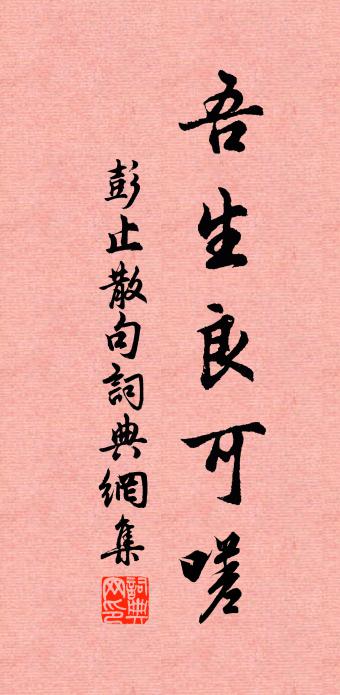 吾生良可嗟
彭止散句詞典網集
詞典網印